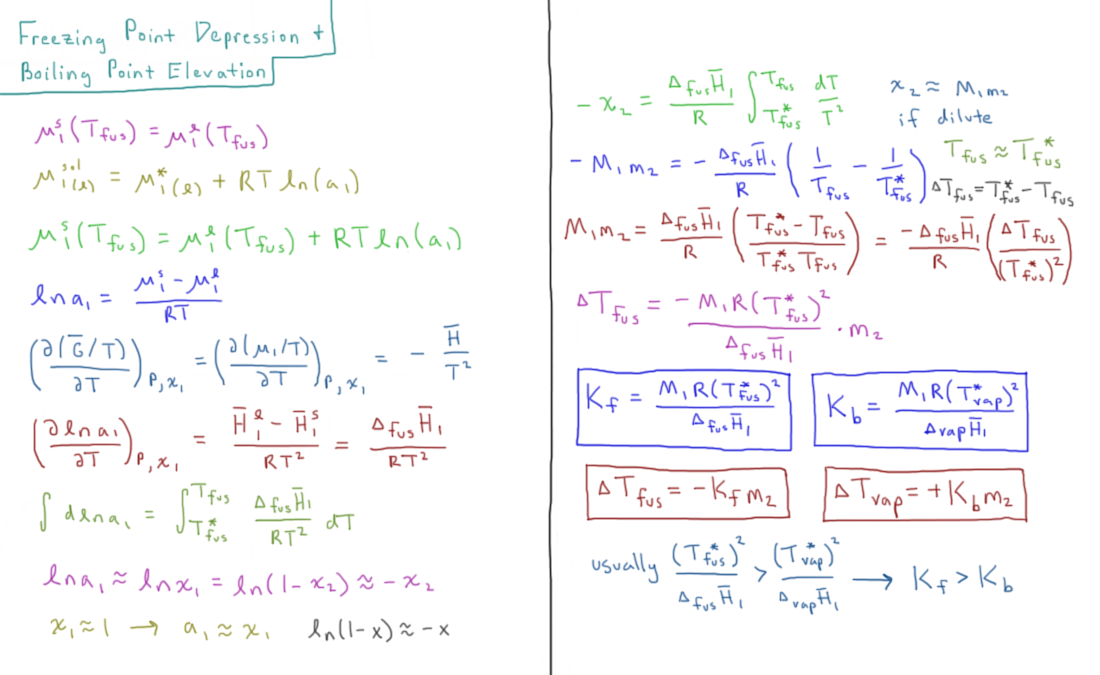 Freezing Point Depression +
Boiling Point Elevation
μ₁ˢ(T_fus) = μ₁ˡ(T_fus)
μ₁₍ₗ₎^sol = μ₁*₍ₗ₎ + RT ln(a₁)
μ₁ˢ(T_fus) = μ₁ˡ(T_fus) + RT ln(a₁)
ln a₁ = (μ₁ˢ - μ₁ˡ)/RT
(∂(G̅/T)/∂T)_P,x₁ = (∂(μ₁/T)/∂T)_P,x₁ = - H̅/T²
(∂ln a₁/∂T)_P,x₁ = (H̅₁ˡ - H̅₁ˢ)/RT² = Δ_fus H̅₁/RT²
∫ d ln a₁ = ∫_{T*_fus}^{T_fus} Δ_fus H̅₁/RT² dT
ln a₁ ≈ ln x₁ = ln(1-x₂) ≈ -x₂
x₁ ≈ 1 → a₁ ≈ x₁ ln(1-x) ≈ -x
-x₂ = Δ_fus H̅₁/R ∫_{T*_fus}^{T_fus} dT/T² x₂ ≈ M₁m₂
if dilute
-M₁m₂ = - Δ_fus H̅₁/R (1/T_fus - 1/T*_fus) T_fus ≈ T*_fus
ΔT_fus = T*_fus - T_fus
M₁m₂ = Δ_fus H̅₁/R ((T*_fus - T_fus)/(T*_fus T_fus)) = -Δ_fus H̅₁/R (ΔT_fus/(T*_fus)²)
ΔT_fus = -M₁R(T*_fus)²/Δ_fus H̅₁ · m₂
K_f = M₁R(T*_fus)²/Δ_fus H̅₁
K_b = M₁R(T*_vap)²/Δ_vap H̅₁
ΔT_fus = -K_f m₂
ΔT_vap = +K_b m₂
usually (T*_fus)²/Δ_fus H̅₁ > (T*_vap)²/Δ_vap H̅₁ → K_f > K_b